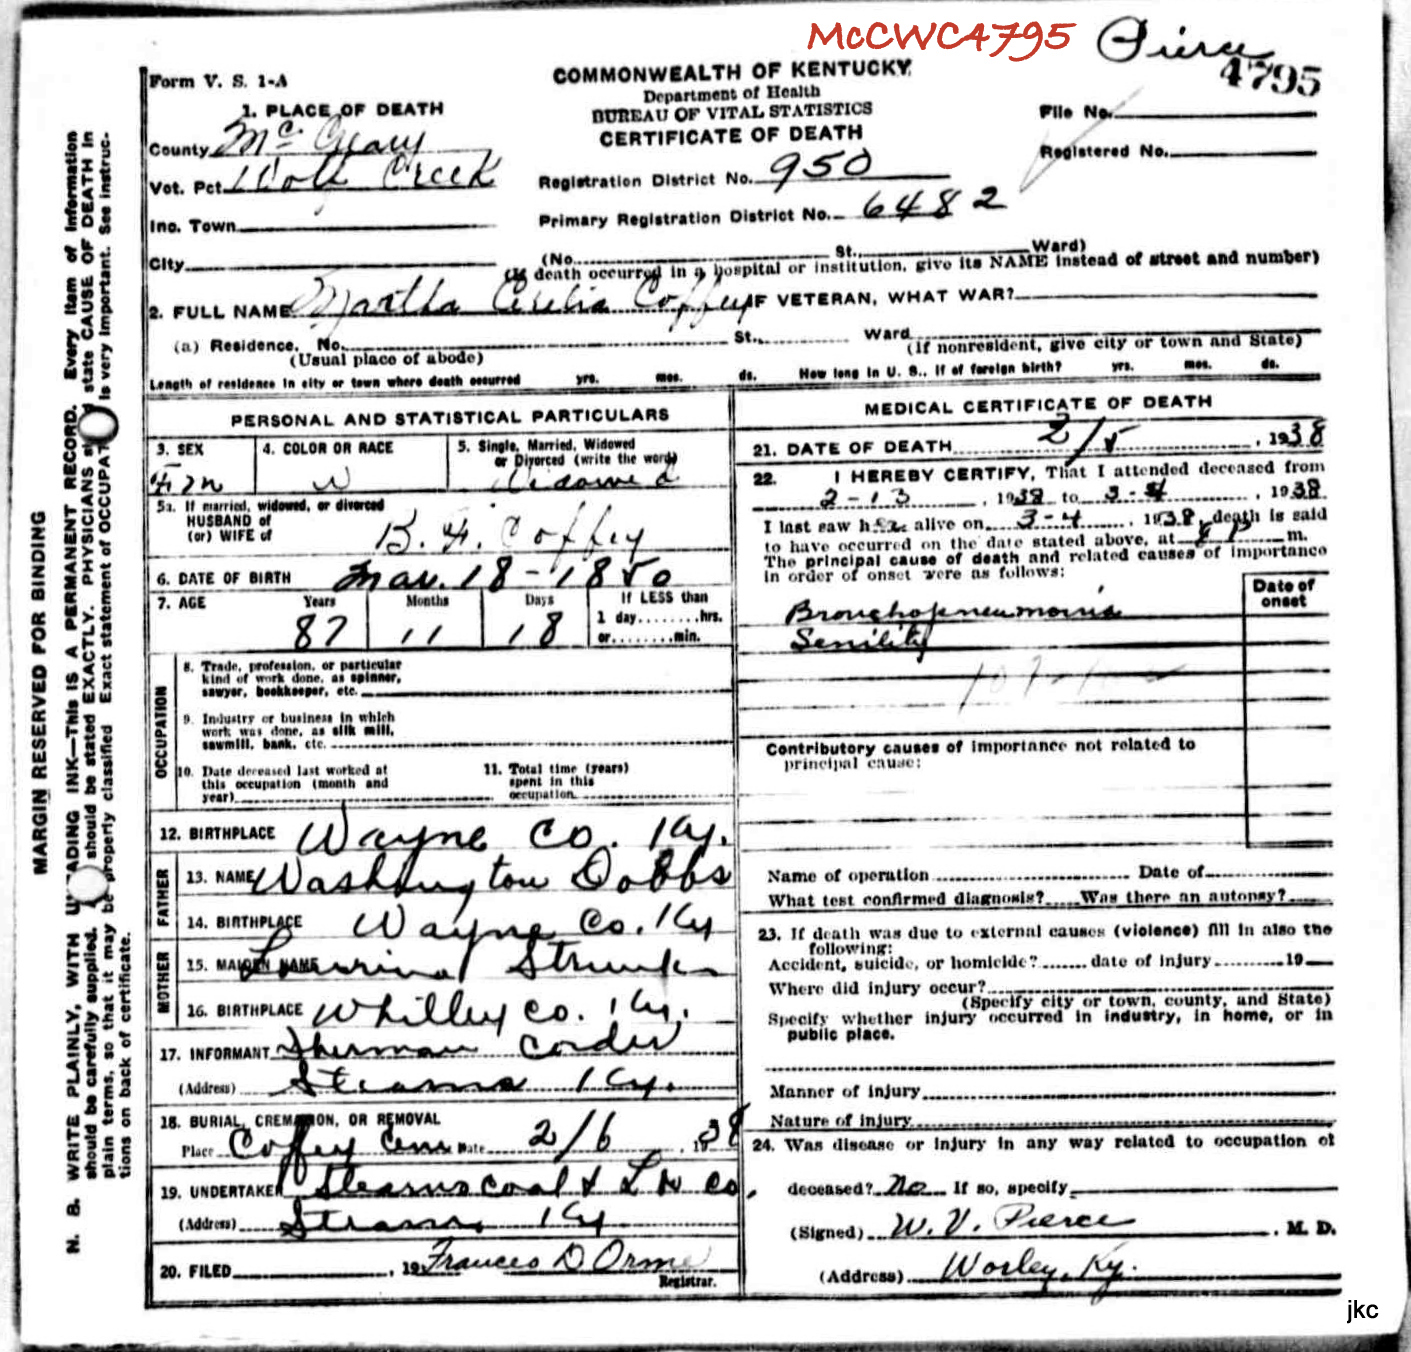 McCWC4795 Pierce
4795
Form V. S. 1-A
COMMONWEALTH OF KENTUCKY
Department of Health
BUREAU OF VITAL STATISTICS
CERTIFICATE OF DEATH
File No.
Registered No.
1. PLACE OF DEATH
County Mc Creary
Vot. Pct. Wolf Creek
Inc. Town
City
Registration District No. 950
Primary Registration District No. 6482
(No. St., Ward)
(If death occurred in a hospital or institution, give its NAME instead of street and number)
2. FULL NAME Martha Coffey IF VETERAN, WHAT WAR?
(a) Residence. No. St., Ward
(Usual place of abode) (If nonresident, give city or town and State)
Length of residence in city or town where death occurred yrs. mos. ds. How long in U. S., if of foreign birth? yrs. mos. ds.
PERSONAL AND STATISTICAL PARTICULARS
3. SEX
Fem
4. COLOR OR RACE
W
5. Single, Married, Widowed
or Divorced (write the word)
Widowed
5a. If married, widowed, or divorced
HUSBAND of
(or) WIFE of B. F. Coffey
6. DATE OF BIRTH Mar. 18 - 1850
7. AGE Years Months Days If LESS than
87 11 18 1 day........hrs.
or........min.
OCCUPATION
8. Trade, profession, or particular
kind of work done, as spinner,
sawyer, bookkeeper, etc.
9. Industry or business in which
work was done, as silk mill,
sawmill, bank, etc.
10. Date deceased last worked at
this occupation (month and
year)
11. Total time (years)
spent in this
occupation
12. BIRTHPLACE Wayne Co. Ky.
FATHER
13. NAME Washington Dobbs
14. BIRTHPLACE Wayne Co. Ky
MOTHER
15. MAIDEN NAME Strunk
16. BIRTHPLACE Whitley Co. Ky.
17. INFORMANT Sherman Corder
(Address) Stearns Ky.
18. BURIAL, CREMATION, OR REMOVAL
Place Coffey Cem Date 2/6, 1938
19. UNDERTAKER Stearns Coal & L Co.
(Address) Stearns Ky
20. FILED , 19 Frances D Orme
Registrar.
MEDICAL CERTIFICATE OF DEATH
21. DATE OF DEATH 2/5, 1938
22. I HEREBY CERTIFY, That I attended deceased from
2-13, 1938 to 3-4, 1938
I last saw her alive on 3-4, 1938, death is said
to have occurred on the date stated above, at 8 P m.
The principal cause of death and related causes of importance
in order of onset were as follows:
Date of
onset
Bronchopneumonia
Senility
Contributory causes of importance not related to
principal cause:
Name of operation Date of
What test confirmed diagnosis? Was there an autopsy?
23. If death was due to external causes (violence) fill in also the
following:
Accident, suicide, or homicide? date of injury 19
Where did injury occur?
(Specify city or town, county, and State)
Specify whether injury occurred in industry, in home, or in
public place.
Manner of injury
Nature of injury
24. Was disease or injury in any way related to occupation of
deceased? No If so, specify
(Signed) W. V. Pierce, M. D.
(Address) Worley, Ky.
MARGIN RESERVED FOR BINDING
N. B. WRITE PLAINLY, WITH UNFADING INK—THIS IS A PERMANENT RECORD. Every item of information
should be carefully supplied. should be stated EXACTLY. PHYSICIANS state CAUSE OF DEATH in
plain terms, so that it may be properly classified Exact statement of OCCUPAT is very important. See instruc-
tions on back of certificate.
jkc